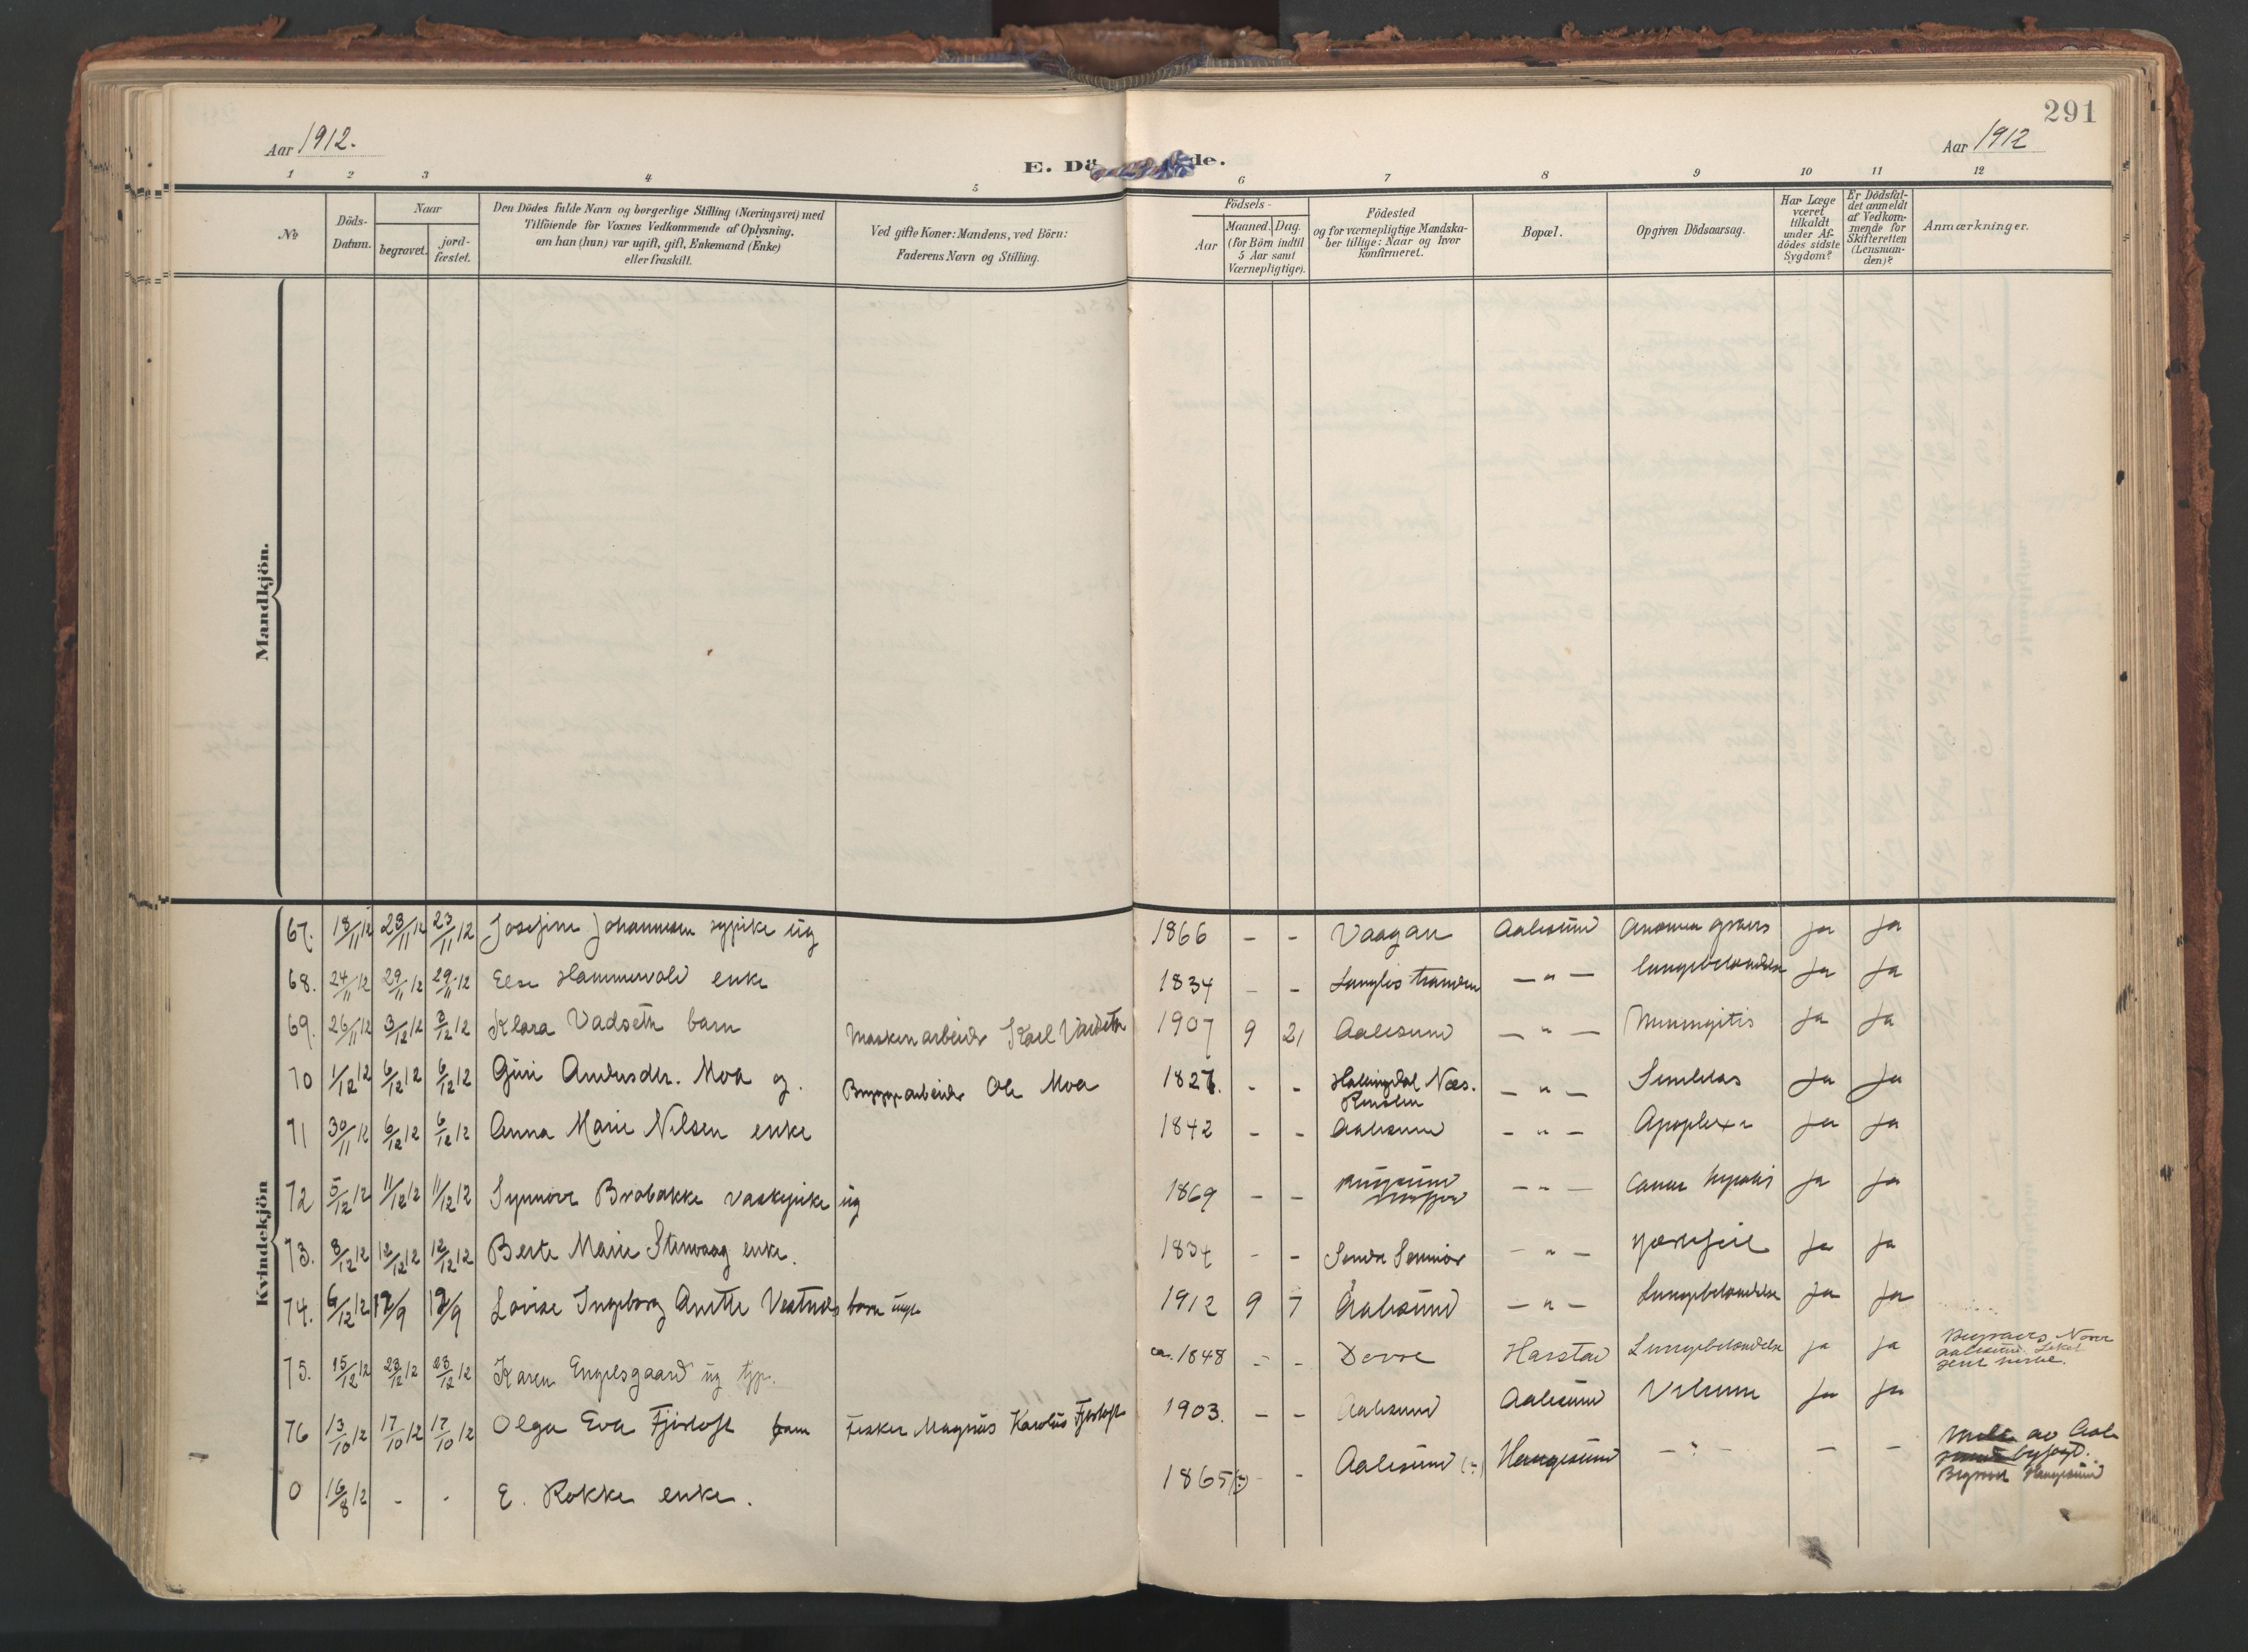 291
Aar 1912.
Aar 1912
E. Dö de.
1 2 3 4 5 6 7 8 9 10 11 12
No
Döds-
Datum.
Naar
begravet.
jord-
fæstet.
Den Dödes fulde Navn og borgerlige Stilling (Næringsvei) med
Tilföiende for Voxnes Vedkommende af Oplysning,
om han (hun) var ugift, gift, Enkemand (Enke)
eller fraskilt.
Ved gifte Koner: Mandens, ved Börn:
Faderens Navn og Stilling.
Födsels-
Aar
Maaned. Dag.
(for Börn indtil
5 Aar samt
Værnepligtige).
Födested
og for værnepligtige Mandska-
ber tillige: Naar og hvor
konfirmeret.
Bopæl.
Opgiven Dödsaarsag.
Har Læge
været
tilkaldt
under Af-
dödes sidste
Sygdom?
Er Dödsfal-
det anmeldt
af Vedkom-
mende for
Skifteretten
(Lensman-
den)?
Anmærkninger.
Mandkjön.
Kvindekjön
67. 18/11 12 23/11 12 23/11 12 Josefine Johannesen sypike ug 1866 - - Vaagan Aalesund ja ja
68. 24/11 12 29/11 12 29/11 12 Else Hammervold enke 1834 - - — " — Lungebetændelse ja ja
69. 26/11 12 3/12 12 3/12 12 Klara Vadseth barn Maskinarbeider Karl Vadseth 1907 9 21 Aalesund — " — Meningitis ja ja
70 1/12 12 6/12 12 6/12 12 Guri Andersdtr. Moa g. Bryggearbeider Ole Moa 1827. - - Hallingdal Næs. — " — Senilitas ja ja
71 30/11 12 6/12 12 6/12 12 Anna Marie Nilsen enke 1842 - - Aalesund - " - Apoplexia ja ja
72 5/12 12 11/12 12 11/12 12 Synnøve Brobakke vaskepike ug 1869 - - - " - Cancer hepatis ja ja
73. 8/12 12 12/12 12 12/12 12 Berte Marie Stenvaag enke. 1834 - - - " - Hjertefeil ja ja
74. 6/12 12 12/9 12/9 Lovise Ingeborg Anette Vestnes barn 1912 9 7 Aalesund — " — Lungebetændelse ja ja
75. 15/12 12 23/12 12 23/12 12 Karen Engelsgaard ug tjp. ca. 1848 - - Dovre Harstad Lungebetændelse ja ja
76 13/10 12 17/10 12 17/10 12 Olga Eva Fjørtoft barn Fisker Magnus Karolus Fjørtoft 1903. - - Aalesund Aalesund ja ja
0 16/8 12 - - E. Rokke enke. 1865(?) - - Aalesund (?) Haugesund — " — - - av Aale
byfogd.
Haugesund